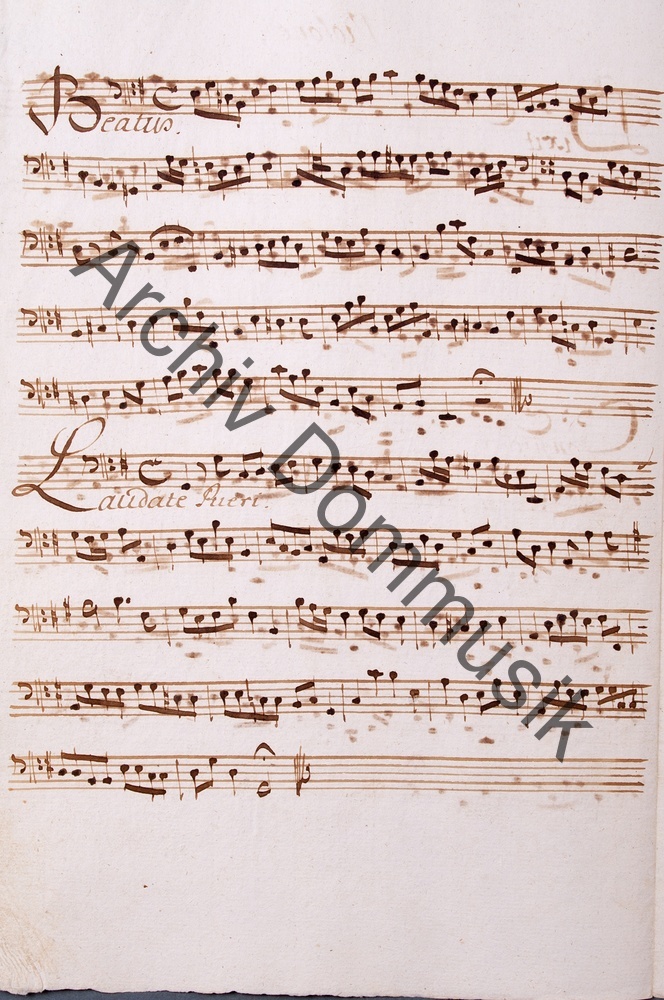 Beatus.
Laudate Pueri.
Archiv Dommusik